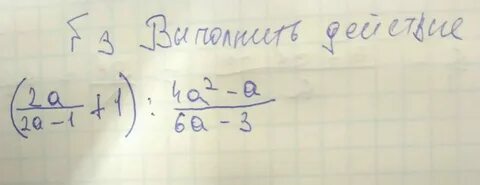 Г 3 Выполнить действие
(2a/(2a-1) + 1) : (4a² - a)/(6a - 3)